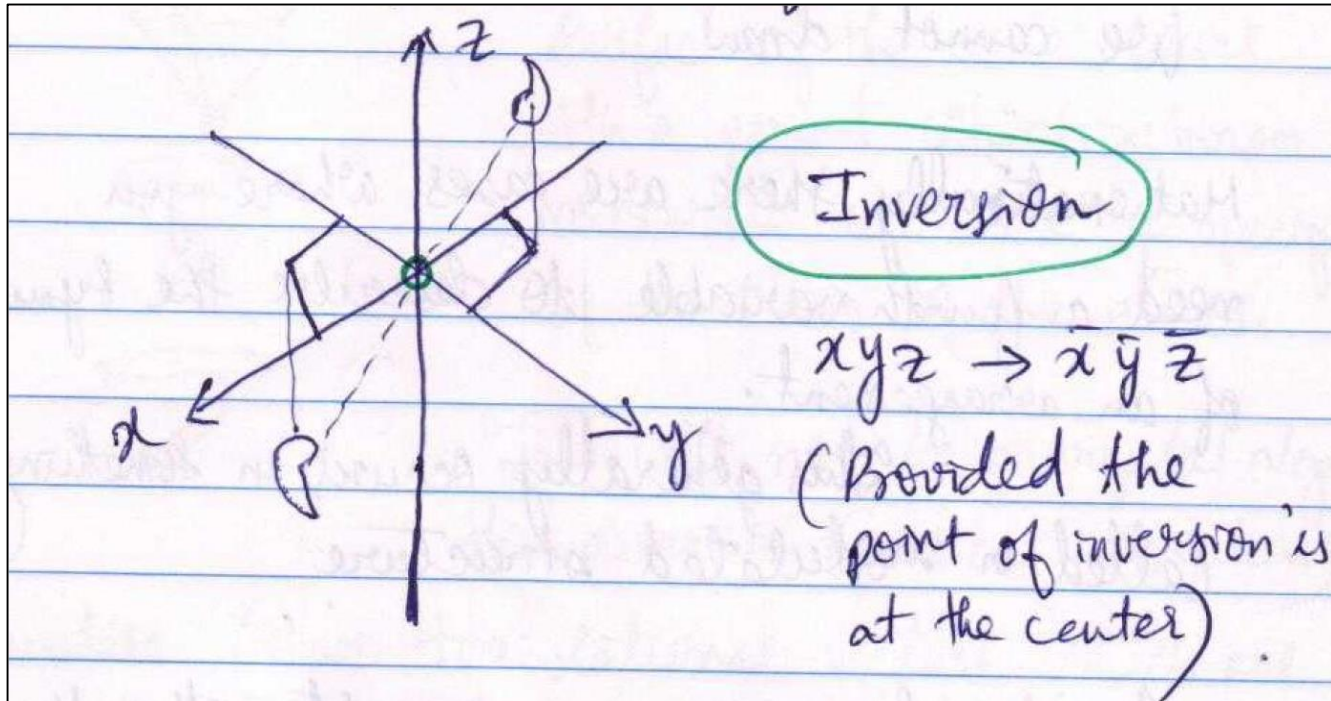 z
x
y
Inversion
x y z → x̄ ȳ z̄
(Provided the
point of inversion is
at the center).